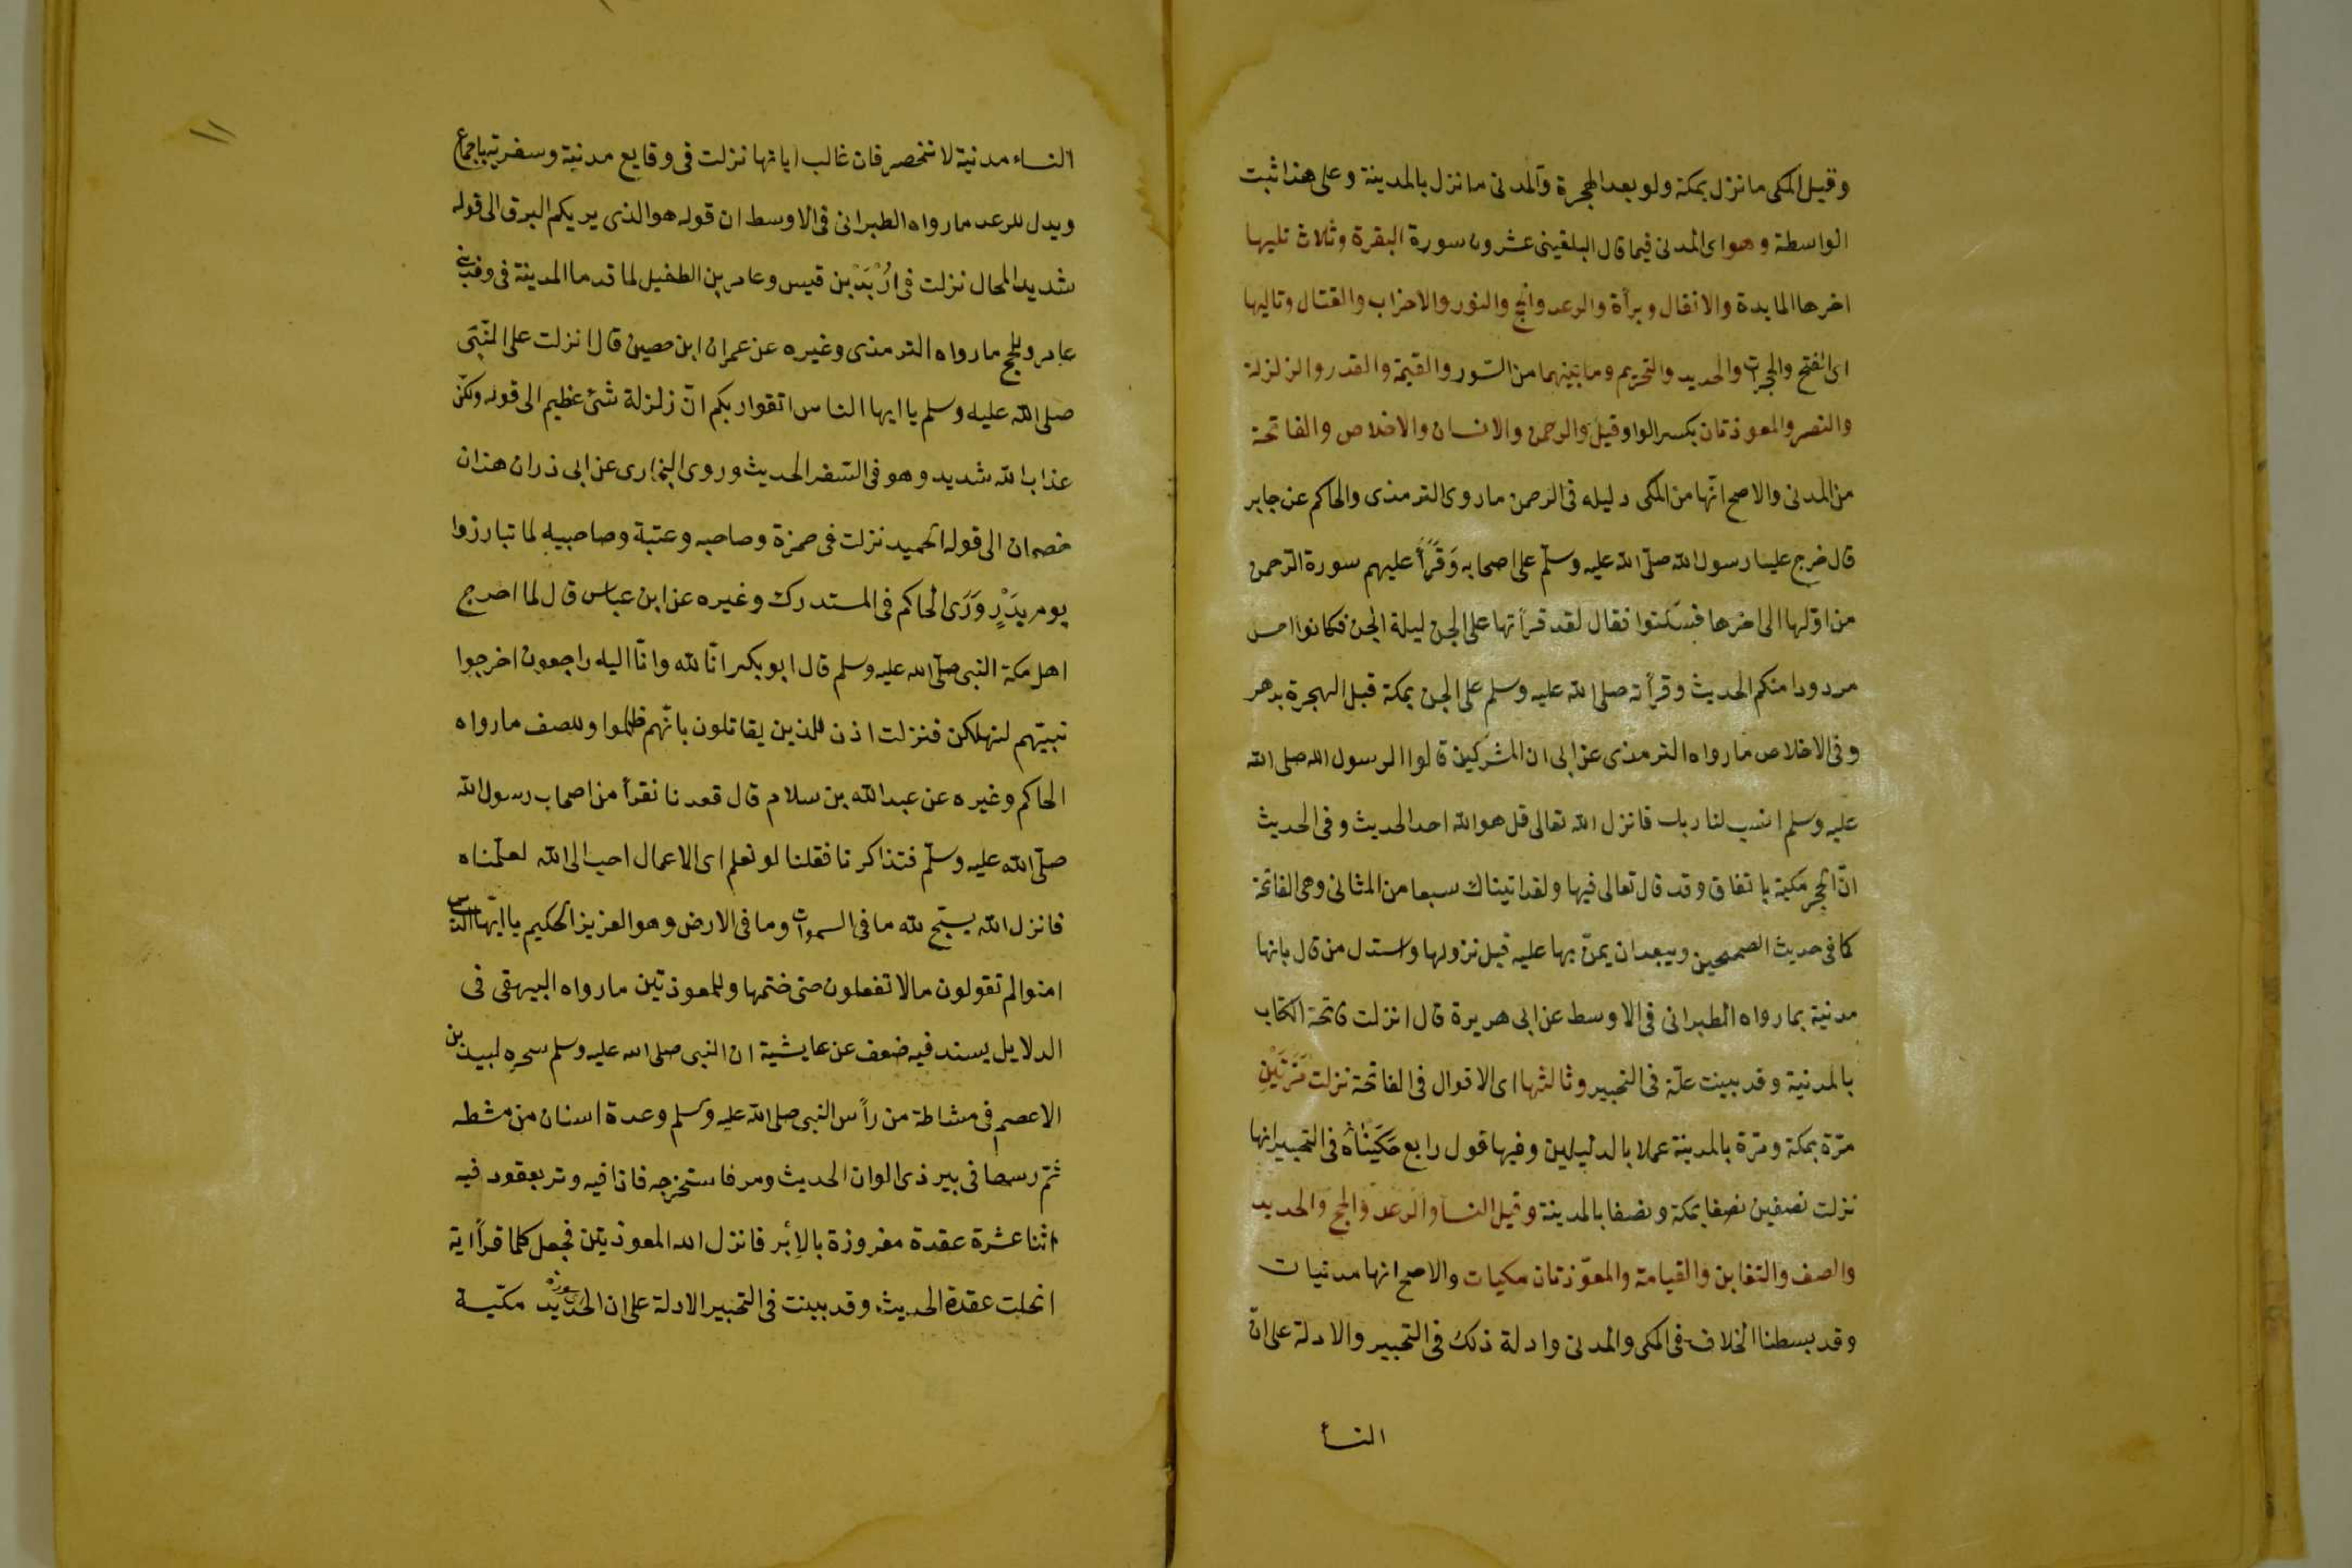 وقيل المكى ما نزل بمكة ولو بعد الهجرة والمدنى ما نزل بالمدينة وعلى هذا ثبت
الواسطة وهو اى المدنى فيما قال البلقينى عشرون سورة البقرة وثلاث تليها
اخرها المايدة والانفال وبرأة والرعد والحج والنور والاحزاب والقتال وتاليها
اى الفتح والحجرات والحديد والتحريم وما بينهما من السور والقيمة والقدر والزلزلة
والنصر والمعوذتان بكسر الواو وقيل والرحمن والانسان والاخلاص والفاتحة
من المدنى والاصح انها من المكى دليله فى الرحمن ما روى الترمذى والحاكم عن جابر
قال خرج علينا رسول الله صلى الله عليه وسلم على اصحابه وَقَرَأَ عليهم سورة الرحمن
من اولها الى اخرها فسكتوا فقال لقد قرأتها على الجن ليلة الجن فكانوا احسن
مردودا منكم الحديث وقرأته صلى الله عليه وسلم على الجن بمكة قبل الهجرة بدهر
وفى الاخلاص ما رواه الترمذى عن ابى ان المشركين قالوا لرسول الله صلى الله
عليه وسلم انسب لنا ربك فانزل الله تعالى قل هو الله احد الحديث وفى الحديث
انّ الحجر مكية باتفاق وقد قال تعالى فيها ولقد اتيناك سبعا من المثانى وهى الفاتحة
كما فى حديث الصحيحين ويبعد ان يمنّ بها عليه قبل نزولها واستدل من قال بانها
مدنية بما رواه الطبرانى فى الاوسط عن ابى هريرة قال انزلت فاتحة الكتاب
بالمدنية وقد بينت علّة فى التحبير وثالثها اى الاقوال فى الفاتحة نزلت مَرَّتَيْنِ
مرّة بمكة ومرّة بالمدينة عملا بالدليلين وفيها قول رابع حَكَيْنَاهُ فى التحبير انها
نزلت نصفين نصفا بمكة ونصفا بالمدينة وقيل النسا والرعد والحج والحديد
والصف والتغابن والقيامة والمعوّذتان مكيات والاصح انها مدنيات
وقد بسطنا الخلاف فى المكى والمدنى وادلة ذلك فى التحبير والادلة على انّ
النسأ
١١
النساء مدنية لا تنحصر فان غالب اياتها نزلت فى وقايع مدنية وسفرية باجماع
ويدل للرعد ما رواه الطبرانى فى الاوسط ان قوله هو الذى يريكم البرق الى قوله
شديد المحال نزلت فى ارْبَدْ بن قيس وعامر بن الطفيل لما قدما المدينة فى وفد بنى
عامر وللحج ما رواه الترمذى وغيره عن عمران ابن حصين قال انزلت على النّبى
صلى الله عليه وسلم يا ايها الناس اتقوا ربكم انّ زلزلة شئ عظيم الى قوله ولكن
عذاب الله شديد وهو فى السفر الحديث وروى البخارى عن ابى ذر ان هذان
خصمان الى قوله الحميد نزلت فى حمزة وصاحبه وعتبة وصاحبيه لما تبارزوا
يوم بَدْرٍ وَرَوَى الحاكم فى المستدرك وغيره عن ابن عباس قال لما اخرج
اهل مكة النبى صلى الله عليه وسلم قال ابو بكر انّا لله وانّا اليه راجعون اخرجوا
نبيّهم لنهلكن فنزلت اذن للذين يقاتلون بانّهم ظلموا وللصف ما رواه
الحاكم وغيره عن عبد الله بن سلام قال قعدنا نفرأ من اصحاب رسول الله
صلّى الله عليه وسلّم فتذاكرنا فقلنا لو نعلم اى الاعمال احب الى الله لعلّمناه
فانزل الله يسبّح لله ما فى السموات وما فى الارض وهو العزيز الحكيم يا ايّها الذين
امنوا لم تقولون ما لا تفعلون حتى ختمها وللمعوذتين ما رواه البيهقى فى
الدلايل بسند فيه ضعف عن عايشية ان النبى صلى الله عليه وسلم سحره لبيد بن
الاعصم فى مشاطة من رأس النبى صلى الله عليه وسلم وعدة اسنان من مشطه
ثمّ رسها فى بير ذى الوان الحديث ومر فاستخرجه فاذا فيه وتر بعقود فيه
اثنا عشرة عقدة مغروزة بالأبر فانزل الله المعوذتين فجعل كلما قرأ اية
انحلت عقدة الحديث وقد بينت فى التحبير الادلة على ان سورة الحديد مكّية